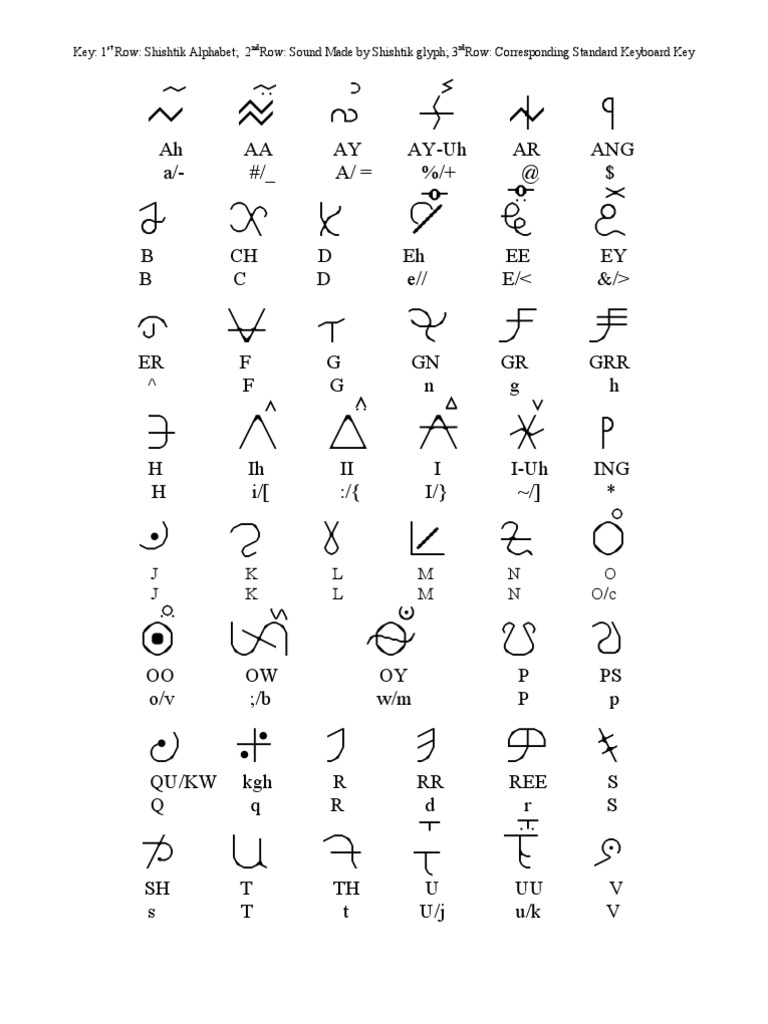 Key: 1st Row: Shishtik Alphabet; 2nd Row: Sound Made by Shishtik glyph; 3rd Row: Corresponding Standard Keyboard Key
Ah AA AY AY-Uh AR ANG
a/- #/_ A/ = %/+ @ $
B CH D Eh EE EY
B C D e// E/< &/>
ER F G GN GR GRR
^ F G n g h
H Ih II I I-Uh ING
H i/[ :/{ I/} ~/] *
J K L M N O
J K L M N O/c
OO OW OY P PS
o/v ;/b w/m P p
QU/KW kgh R RR REE S
Q q R d r S
SH T TH U UU V
s T t U/j u/k V